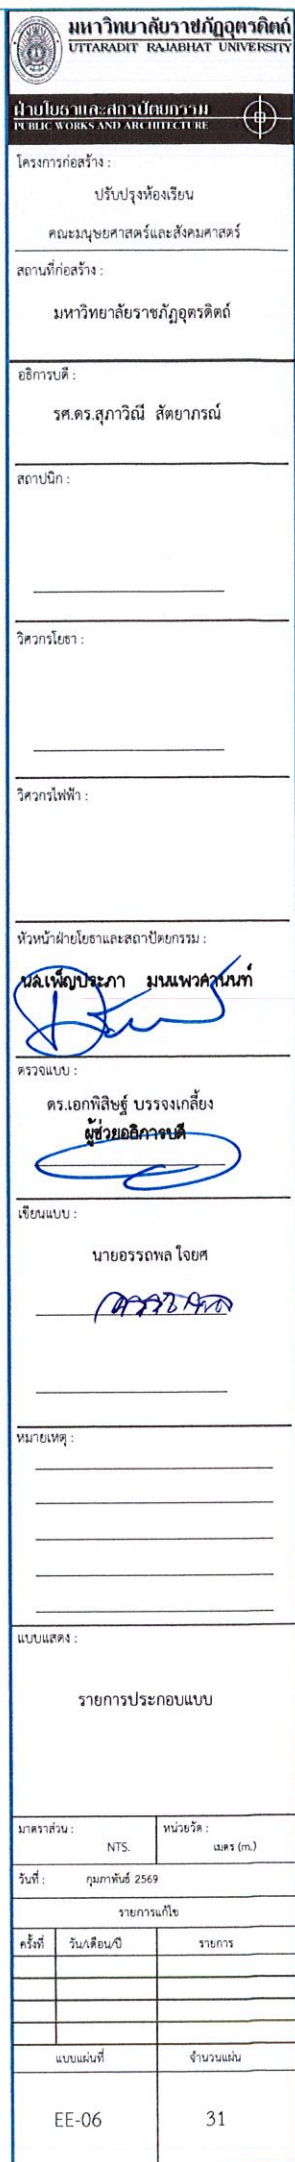 มหาวิทยาลัยราชภัฏอุตรดิตถ์
UTTARADIT RAJABHAT UNIVERSITY
ฝ่ายโยธาและสถาปัตยกรรม
PUBLIC WORKS AND ARCHITECTURE
โครงการก่อสร้าง :
ปรับปรุงห้องเรียน
คณะมนุษยศาสตร์และสังคมศาสตร์
สถานที่ก่อสร้าง :
มหาวิทยาลัยราชภัฏอุตรดิตถ์
อธิการบดี :
รศ.ดร.สุภาวิณี สัตยาภรณ์
สถาปนิก :
วิศวกรโยธา :
วิศวกรไฟฟ้า :
หัวหน้าฝ่ายโยธาและสถาปัตยกรรม :
นส.เพ็ญประภา
ตรวจแบบ :
ดร.เอกพิสิษฐ์ บรรจงเกลี้ยง
ผู้ช่วยอธิการบดี
เขียนแบบ :
นายอรรถพล ใจยศ
หมายเหตุ :
แบบแสดง :
รายการประกอบแบบ
มาตราส่วน : หน่วยวัด :
NTS. เมตร (m.)
วันที่ : กุมภาพันธ์ 2569
รายการแก้ไข
ครั้งที่ วัน/เดือน/ปี รายการ
แบบแผ่นที่ จำนวนแผ่น
EE-06 31